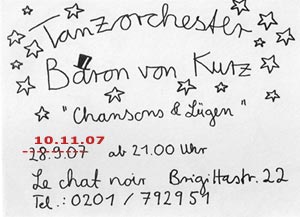 Tanzorchester
Baron von Kurz
"Chansons & Lügen"
10.11.07
28.9.07 ab 21.00 Uhr
Le chat noir Brigittastr. 22
Tel.: 0201 / 792951